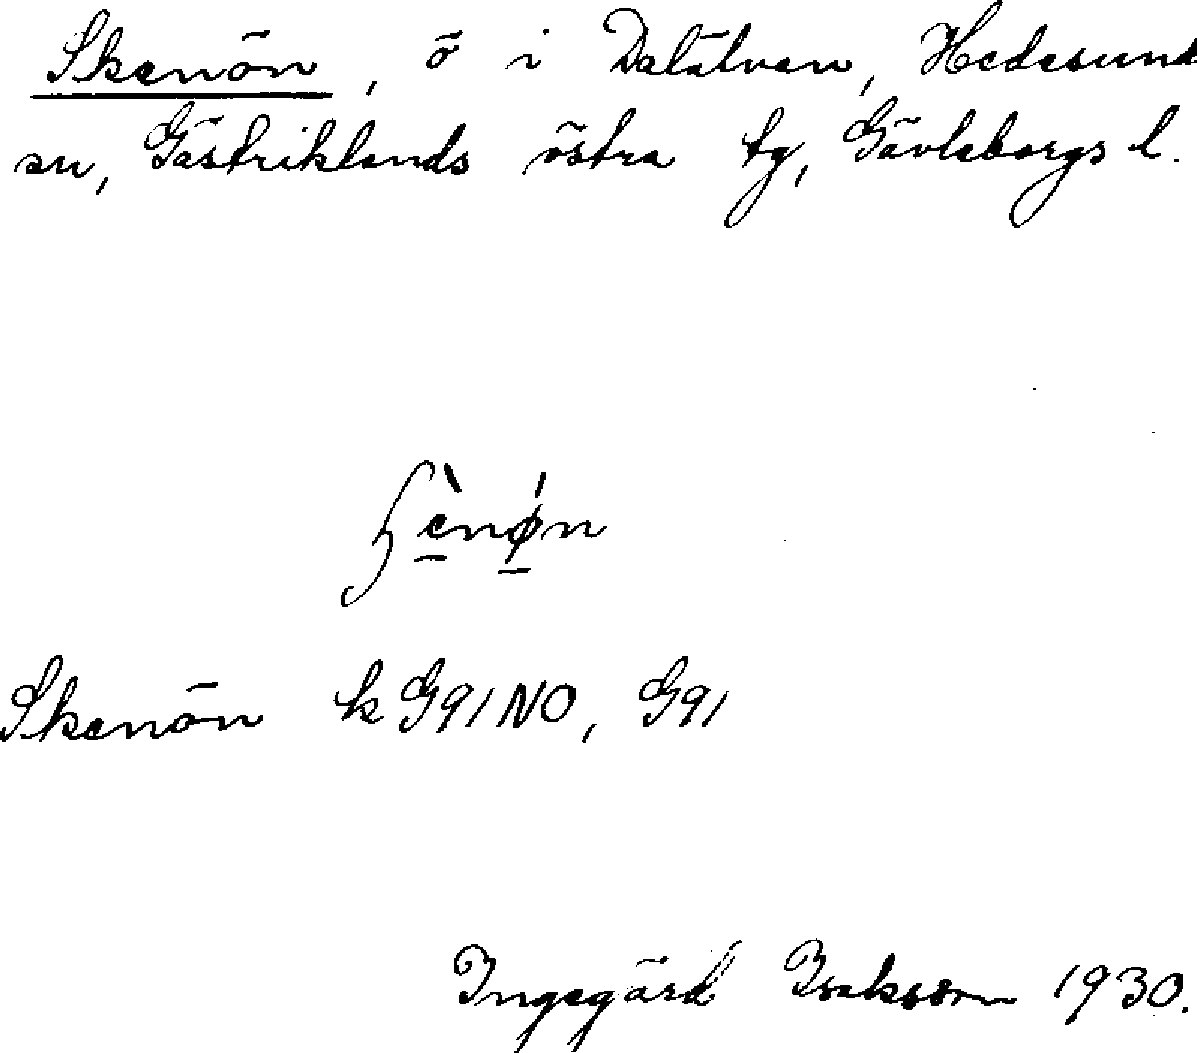 Skenön, ö i Dalälven, Hedesunda
sn, Gästriklands östra tg, Gävleborgs l.
Skenön k G91NO, G91
Ingegärd Isaksson 1930.